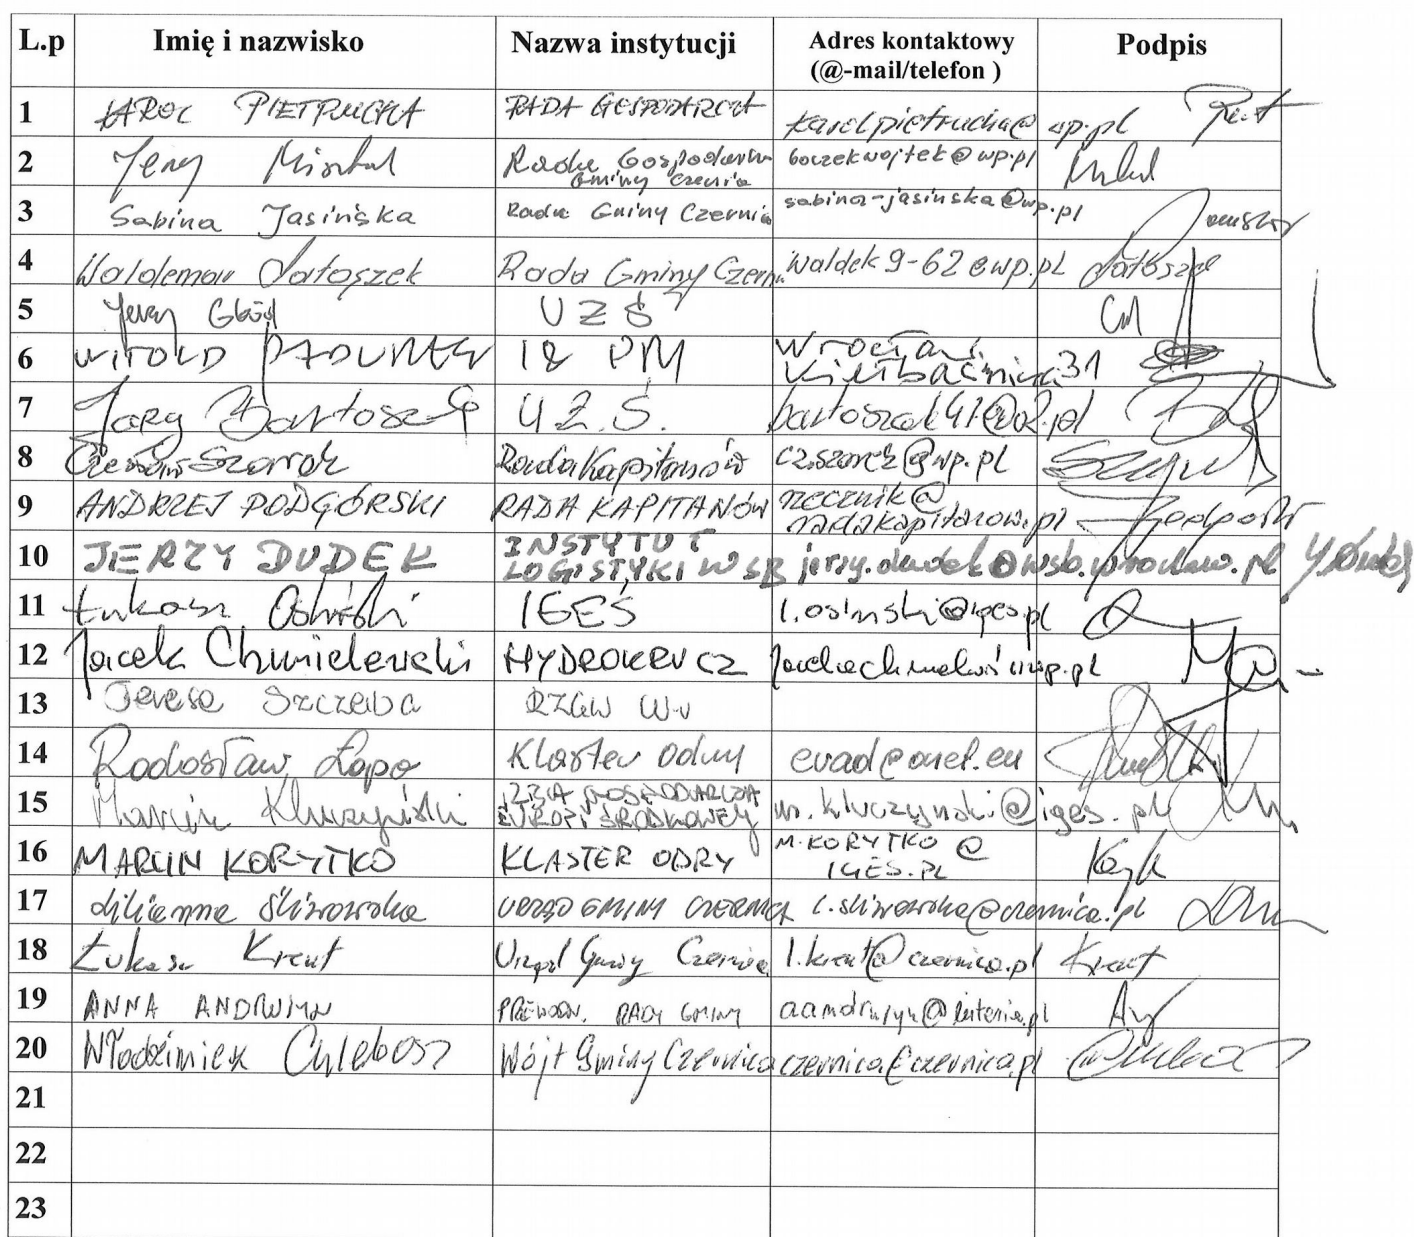 L.p Imię i nazwisko Nazwa instytucji Adres kontaktowy (@-mail/telefon ) Podpis
1 KAROL PIETRUCHA RADA GOSPODARCZA karolpietrucha@wp.pl
2 Jerzy Misztal Rada Gospodarcza Gminy Czernica boczekwojtek@wp.pl
3 Sabina Jasińska Rada Gminy Czernica sabina-jasinska@wp.pl
4 Waldemar Łatoszek Rada Gminy Czern waldek9-62@wp.pl Łatoszek
5 Jerzy UZŚ
6 WITOLD 18 PM Wrocław 31
7 Jerzy Bartoszek UŻ.Ś. bartoszek41@o2.pl
8 Czesław Szarek Rada Kapitanów cz.szarek@wp.pl
9 ANDRZEJ PODGÓRSKI RADA KAPITANÓW rzecznik@radakapitanow.pl
10 JERZY DUDEK INSTYTUT LOGISTYKI WSB jerzy.dudek@wsb.wroclaw.pl
11 Łukasz Osiński IGEŚ l.osinski@iges.pl
12 Jacek Chmielewski
13 Teresa Szczerba RZGW W-w
14 Radosław Łapo Klaster Odry
15 Marcin Kluczyński IZBA GOSPODARCZA EUROPY ŚRODKOWEJ m.kluczynski@iges.pl
16 MARCIN KORYTKO KLASTER ODRY M.KORYTKO@IGES.PL
17 Lilianna Śliwowska URZĄD GMINY CZERNICA l.sliwowska@czernica.pl
18 Łukasz Krent Urząd Gminy Czernica l.krent@czernica.pl Krent
19 ANNA ANDRUSZYN PRZEWODN. RADY GMINY
20 Włodzimierz Chlebosz Wójt Gminy Czernica czernica@czernica.pl
21
22
23